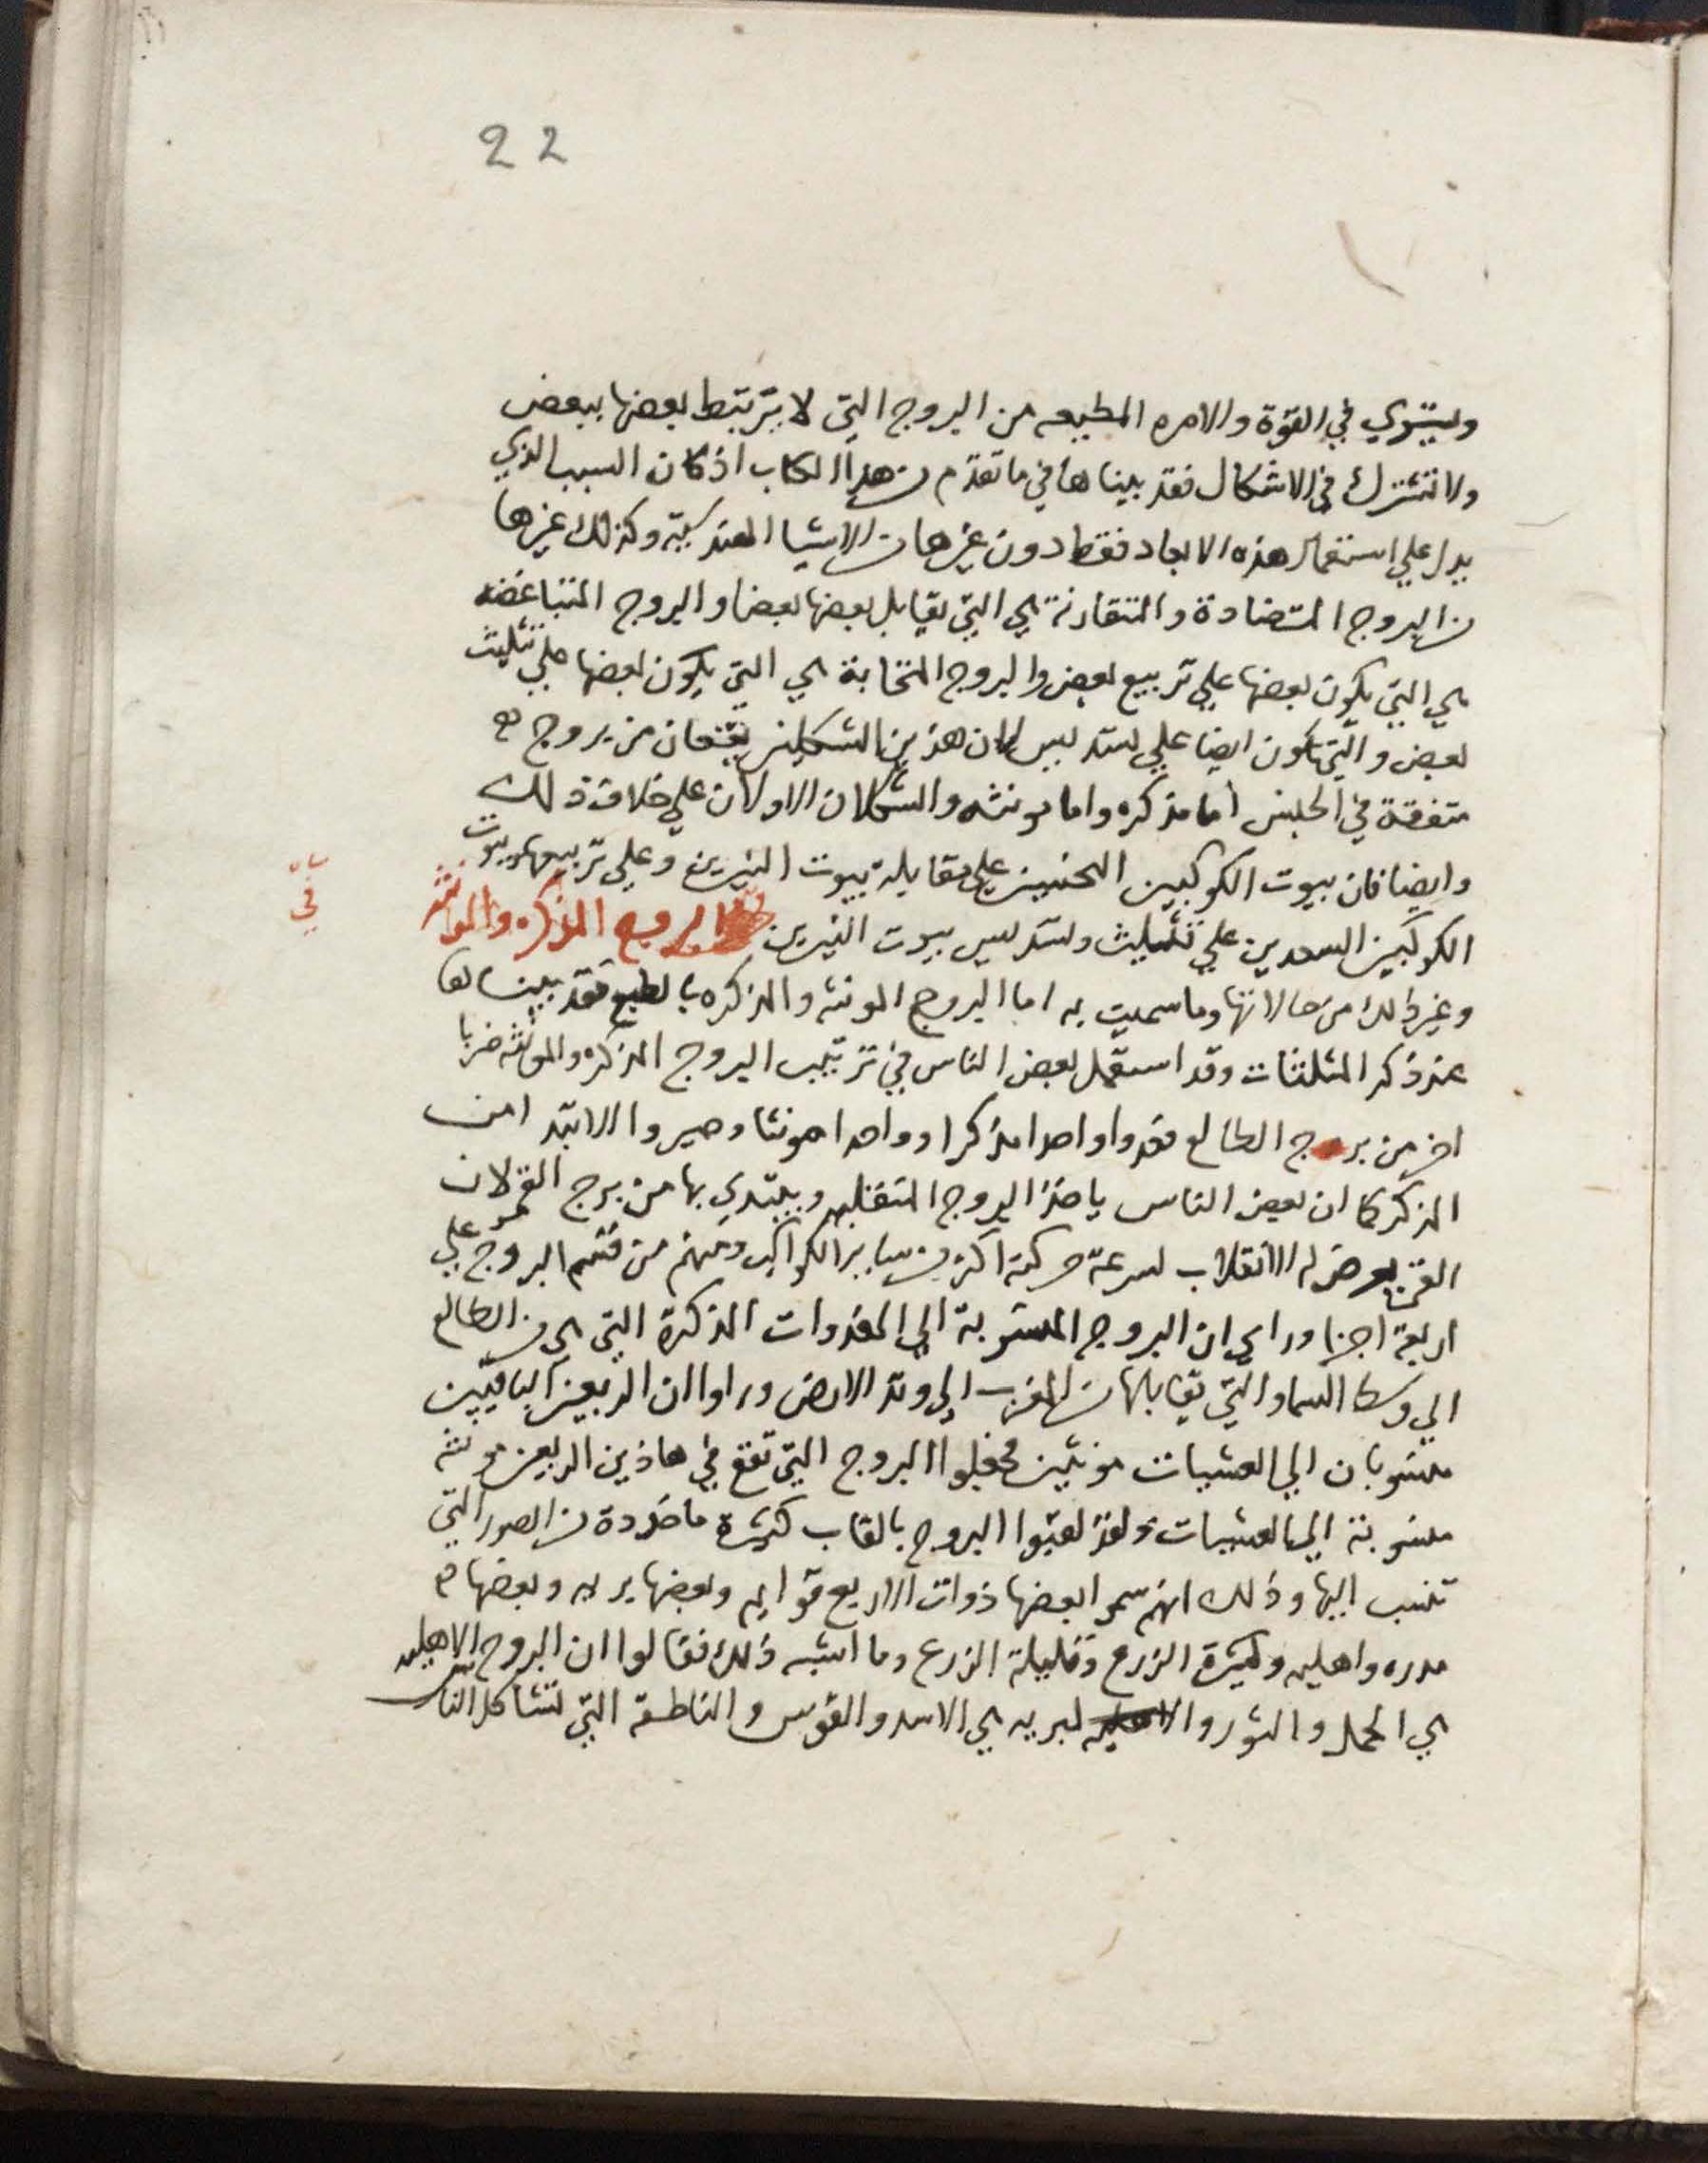 22
ويستوي في القوة والامره المطيعه من البروج التي لا يرتبط بعضها ببعض
ولا تشترك في الاشكال فقد بيناها في ما تقدم من هذا الكتاب اذ كان السبب الذي
يدل علي استعمال هذه الابعاد فقط دون غيرها من الاشيا الهندسية وكذلك غيرها
من البروج المتضادة والمتقارنة هي التي يقابل بعضها بعضا والبروج المتباغضه
هي التي يكون بعضها علي تربيع بعض والبروج المتحابة هي التي يكون بعضها علي تثليث
بعض والتي تكون ايضا علي تسديس لان هذين الشكلين يقعان من بروج
متفقة في الجنس اما مذكره واما مونثه والشكلان الاولان علي خلاف ذلك
وايضا فان بيوت الكوكبين النحسين علي مقابلة بيوت النيرين وعلي تربيعها وبيوت
الكوكبين السعدين علي تثليث وتسديس بيوت النيرين البروج المذكره والمونثه
في
وغير ذلك من حالاتها وما سميت به اما البروج المونثه والمذكره بالطبع فقد بيناها
عند ذكر المثلثات وقد استعمل بعض الناس في ترتيب البروج المذكره والمونثه ضربا
اخر من برج الطالع فعدوا واحدا مذكرا وواحدا مونثا وصيروا الابتدا من
المذكر كما ان بعض الناس ياخذ البروج المنقلبه ويبتدي بها من برج القمر لان
القمر يعرض له الانقلاب لسرعة حركته اكثر من ساير الكواكب ومنهم من قسم البروج علي
اربعة اجزا وراي ان البروج المنسوبة الي الغدوات المذكرة التي هي من الطالع
الي وسط السما والتي تقابلها من المغرب الي وتد الارض وراوا ان الربعين الباقيين
منسوبان الي العشيات مونثين فجعلوا البروج التي تقع في هاذين الربعين مونثه
منسوبة الي العشيات ولقد لقبوا البروج بالقاب كثيرة ماخودة من الصور التي
تنسب اليها وذلك انهم سموا بعضها ذوات الاربع قوايم وبعضها بريه وبعضها
مدره واهليه وكثيرة الزرع وقليلة الزرع وما اشبه ذلك فقالوا ان البروج الاهليه
هي الحمل والثور والبريه هي الاسد والقوس والناطقة التي تشاكل الناس